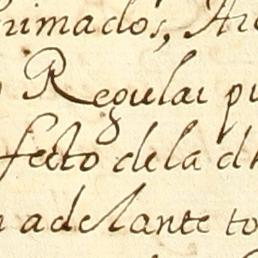 rimados, Au
Regular pu
fecto dela dh
adelante to